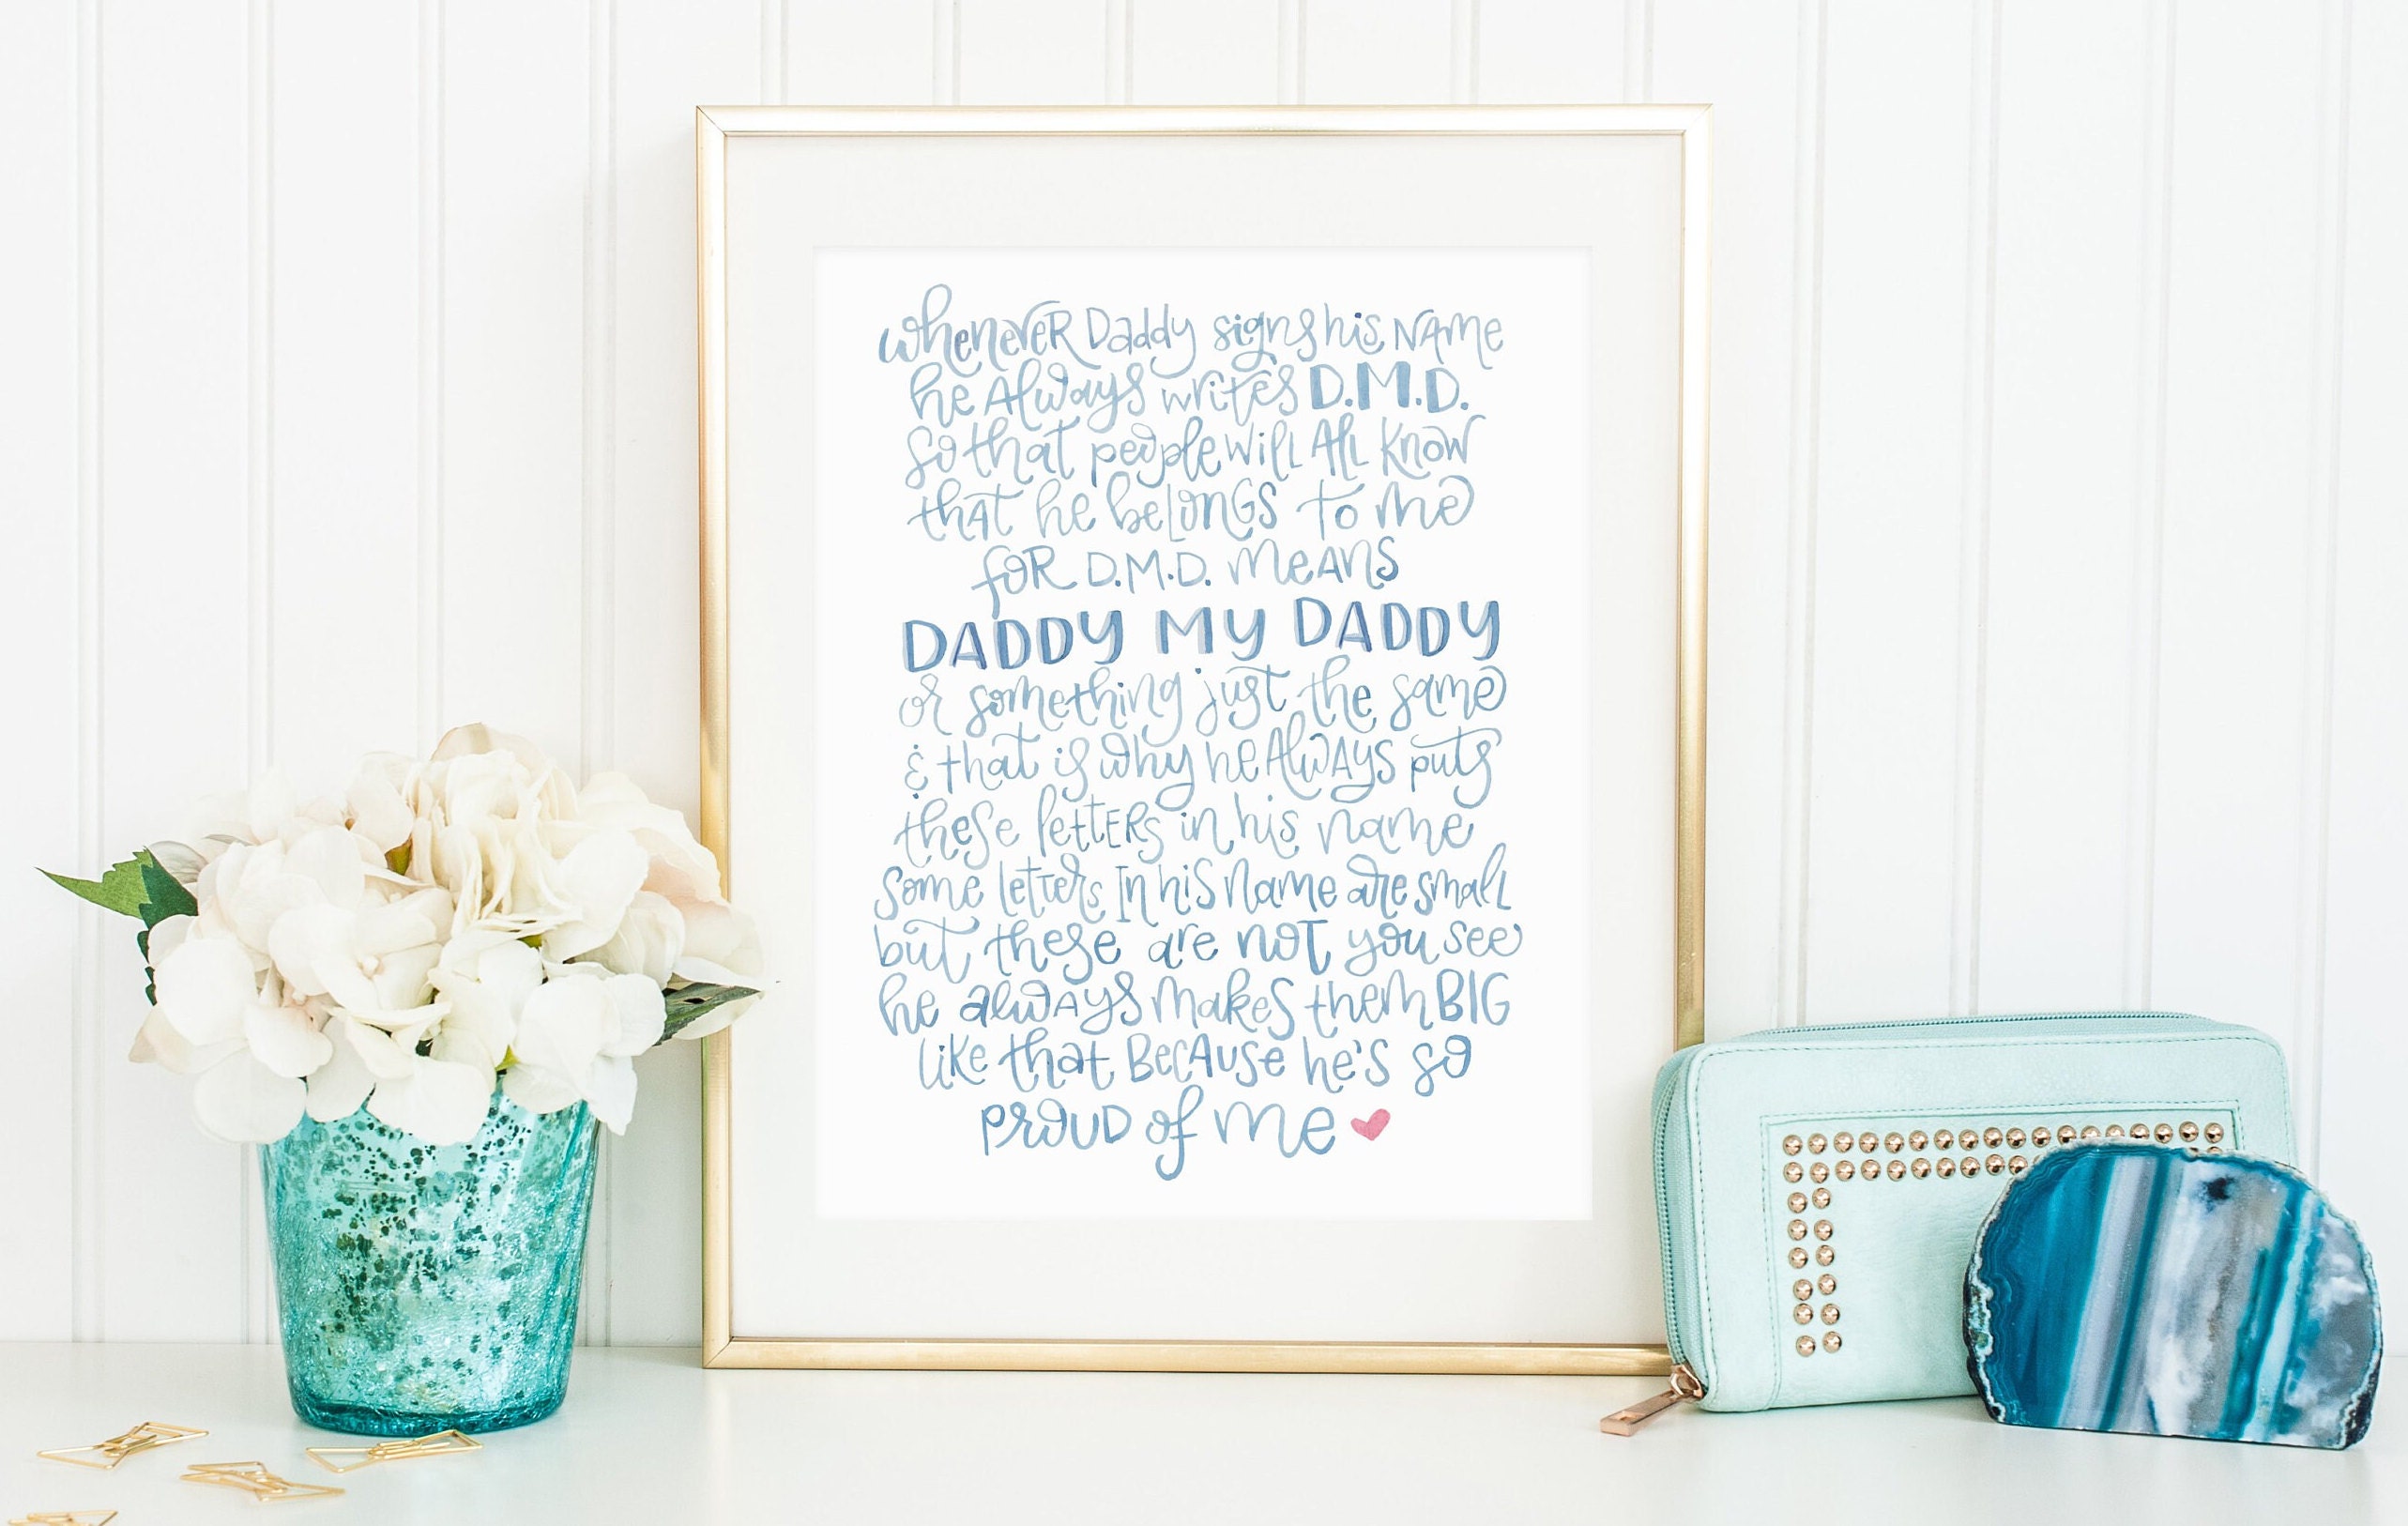 whenever Daddy signs his NAme
he Always writes D.M.D.
so that people will All know
thAt he beLonGS to me
foR D.M.D. MeANS
DADDY MY DADDY
or something just the same
& that is why he AlwAys puts
these lettERs in his name
some letters In his Name are small
but these are noT you see
he alwAys Makes them BIG
like that BecAuse he's so
prouD of Me